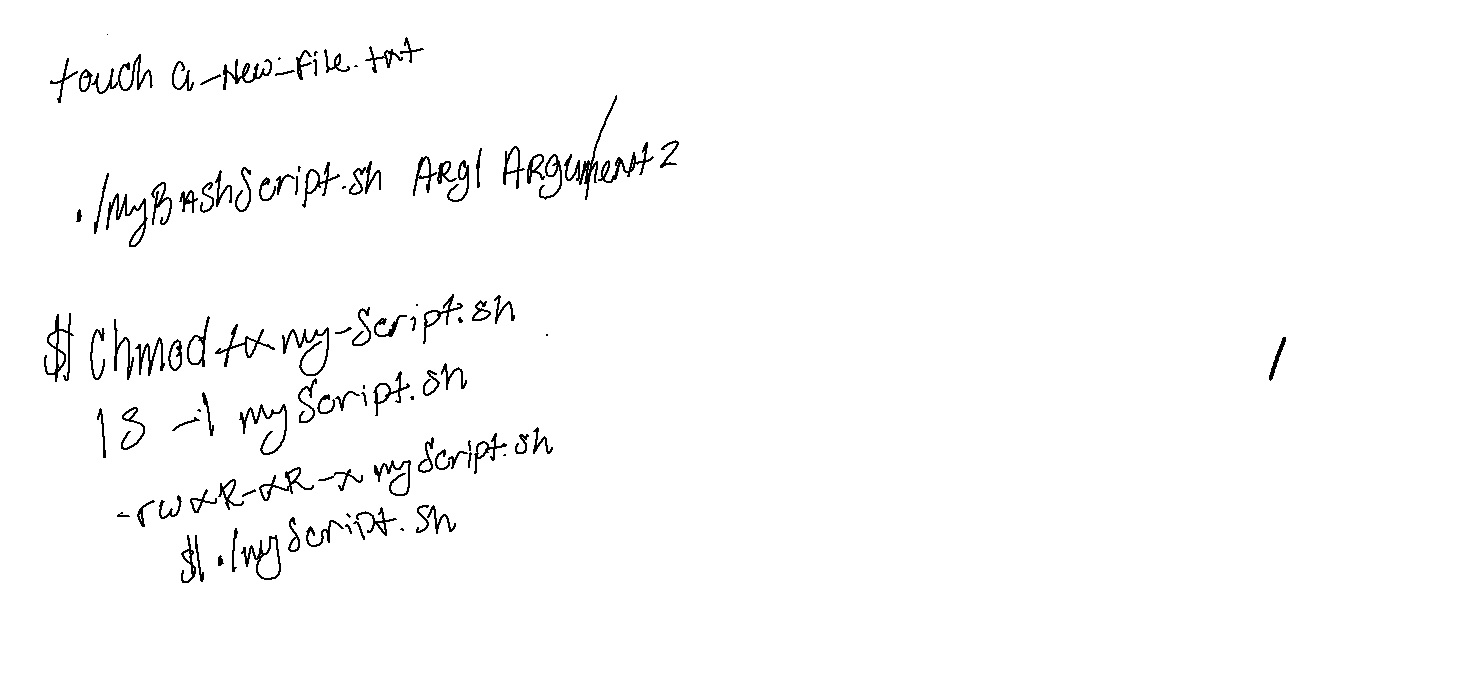 touch a_New_File.txt
./MyBAshScript.sh ARg1 ARgument2
$ Chmod +x my-Script.sh
ls -l myScript.sh
-rwxR-xR-x myScript.sh
$ ./myScript.sh